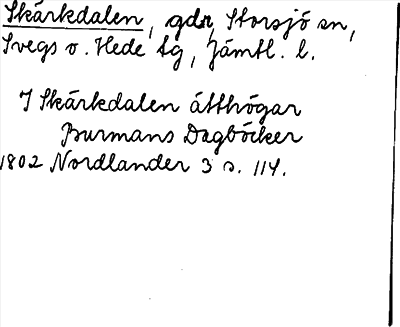 Skärkdalen, gdr, Storsjö sn,
Svegs o. Hede tg, Jämtl. l.
I Skärkdalen ätthögar
Burmans Dagböcker
1802 Nordlander 3 s. 114.